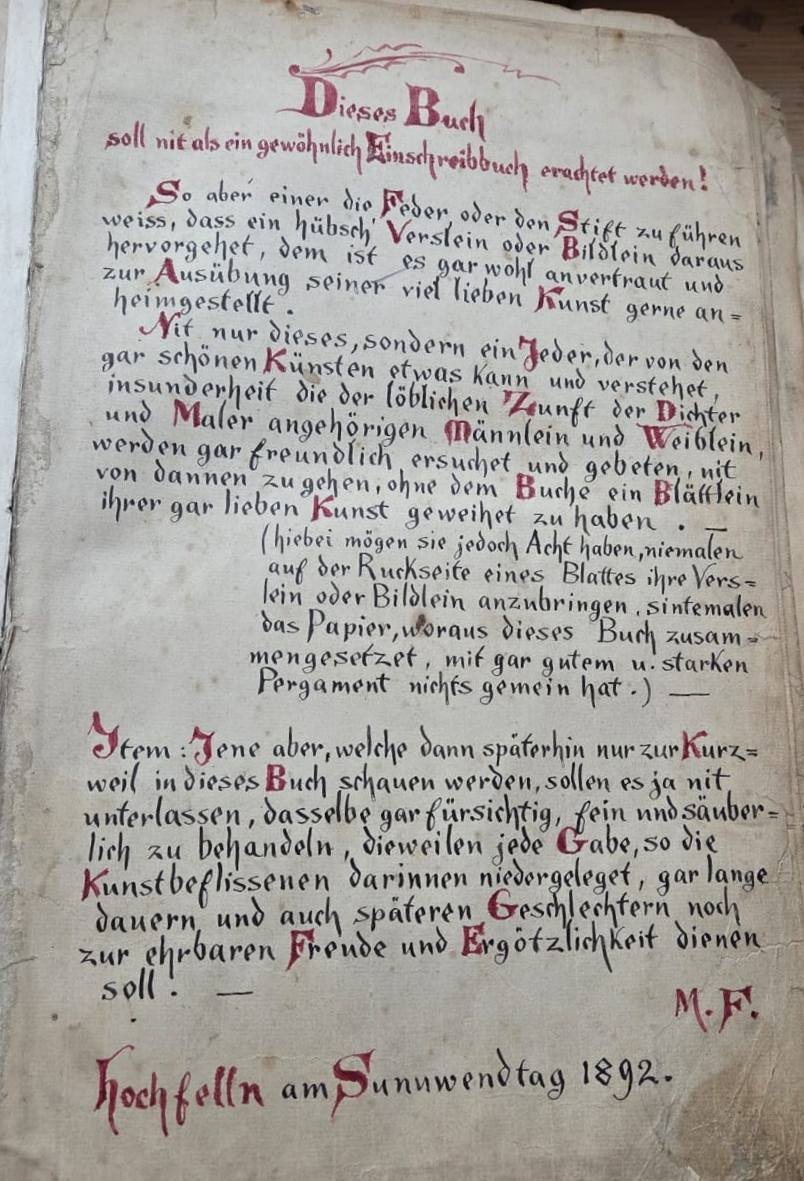 Dieses Buch
soll nit als ein gewöhnlich Einschreibbuch erachtet werden!
So aber einer die Feder, oder den Stift zu führen
weiss, dass ein hübsch' Verslein oder Bildlein daraus
hervorgehet, dem ist es gar wohl anvertraut und
zur Ausübung seiner viel lieben Kunst gerne an=
heimgestellt.
Nit nur dieses, sondern ein Jeder, der von den
gar schönen Künsten etwas kann und verstehet,
insunderheit die der löblichen Zunft der Dichter
und Maler angehörigen Männlein und Weiblein,
werden gar freundlich ersuchet und gebeten, nit
von dannen zu gehen, ohne dem Buche ein Blättlein
ihrer gar lieben Kunst geweihet zu haben. —
(hiebei mögen sie jedoch Acht haben, niemalen
auf der Ruckseite eines Blattes ihre Vers=
lein oder Bildlein anzubringen, sintemalen
das Papier, woraus dieses Buch zusam=
mengesetzet, mit gar gutem u. starken
Pergament nichts gemein hat.) —
Item: Jene aber, welche dann späterhin nur zur Kurz=
weil in dieses Buch schauen werden, sollen es ja nit
unterlassen, dasselbe gar fürsichtig, fein und säuber=
lich zu behandeln, dieweilen jede Gabe, so die
Kunstbeflissenen darinnen niedergeleget, gar lange
dauern und auch späteren Geschlechtern noch
zur ehrbaren Freude und Ergötzlichkeit dienen
soll. —
M. F.
Hochfelln am Sunnwendtag 1892.